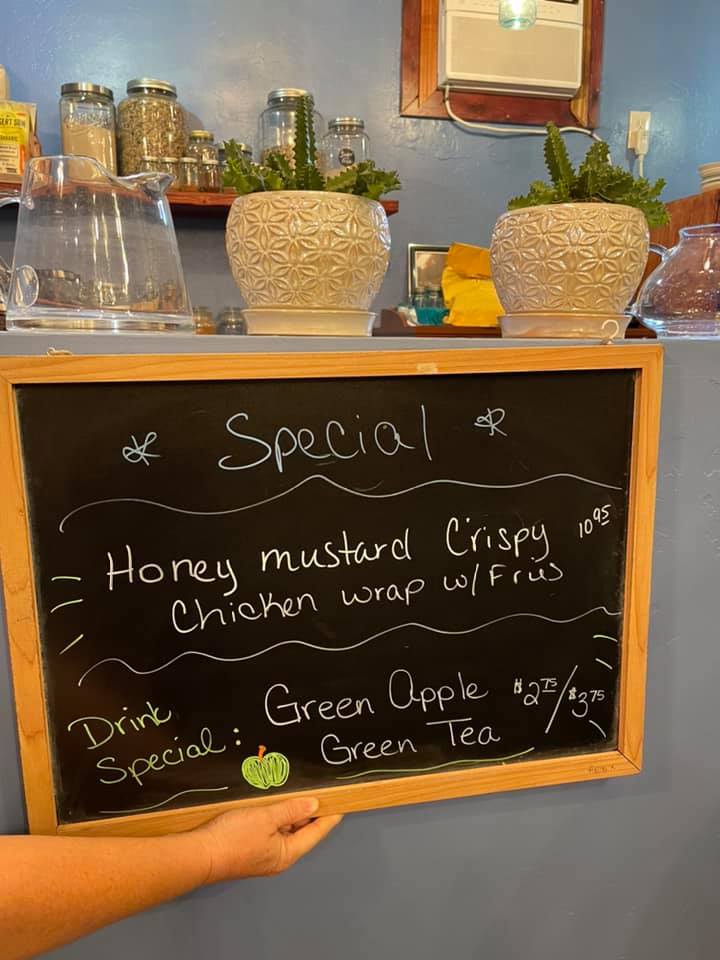 Special
Honey mustard Crispy 10.95
Chicken wrap w/ Fries
Drink Special:
Green Apple Green Tea
$2.75/$3.75